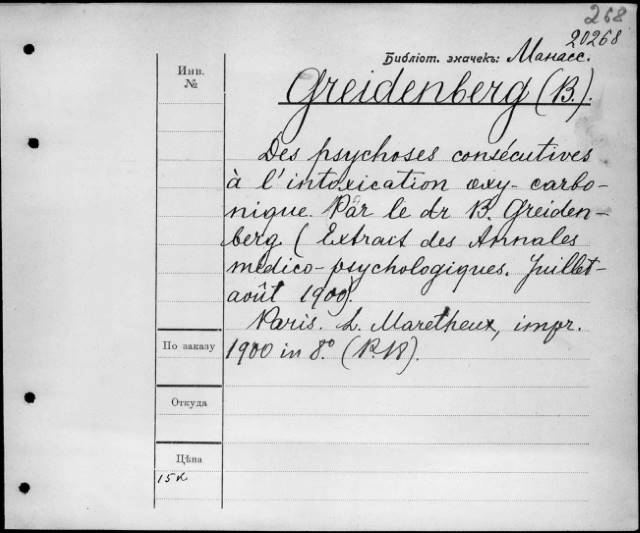 268
20268
Библіот. значекъ: Манасс.
Инв.
№
Greidenberg (B.).
Des psychoses consécutives
à l'intoxication oxy-carbo-
nique. Par le dr B. Greiden-
berg (Extract des Annales
medico-psychologiques. Juillet-
août 1900).
Paris. L. Maretheux, impr.
1900 in 8º. (P.W).
По заказу
Откуда
Цѣна
15к